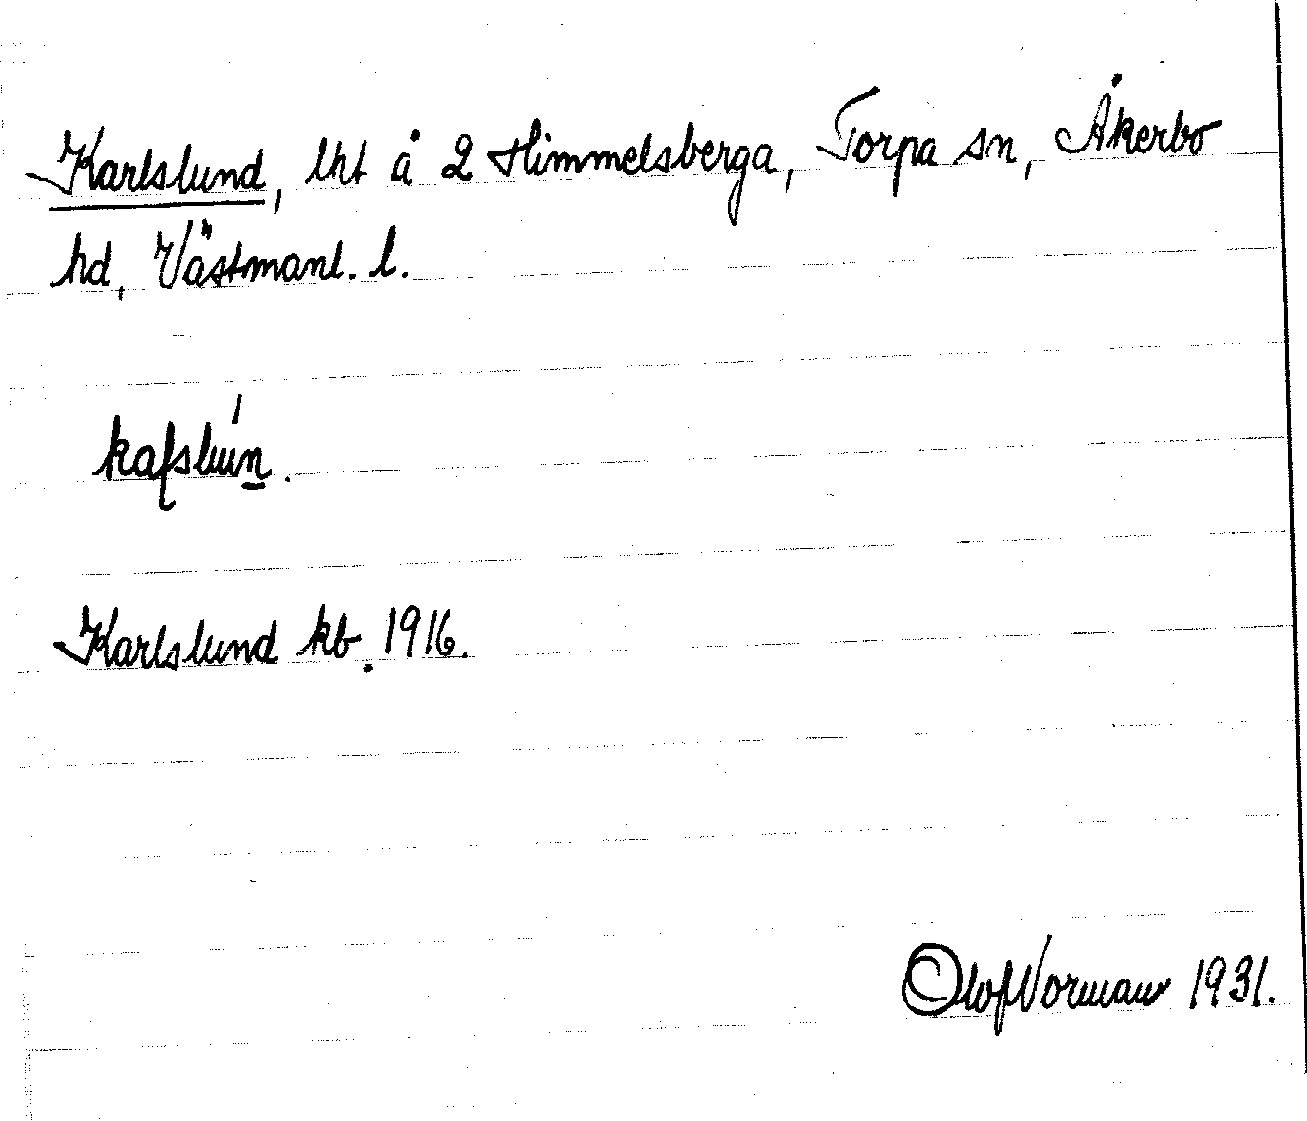 Karlslund, lht å 2 Himmelsberga, Torpa sn, Åkerbo
hd, Västmanl. l.
Karlslund kb. 1916.
Olof Norman 1931.